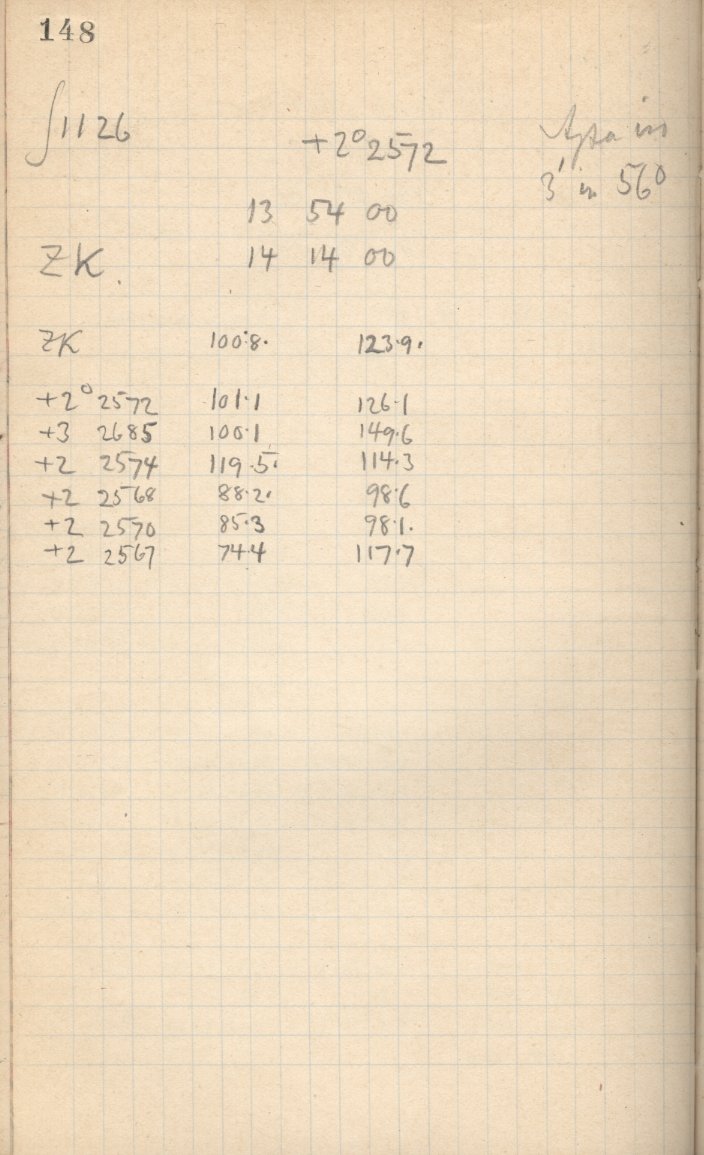 148
∫1126
+2° 2572
in
3' in 56°
13 54 00
ZK. 14 14 00
ZK 100·8. 123·9.
+2° 2572 101·1 126·1
+3 2685 100·1 149·6
+2 2574 119·5. 114·3
+2 2568 88·2. 98·6
+2 2570 85·3 98·1.
+2 2567 74·4 117·7